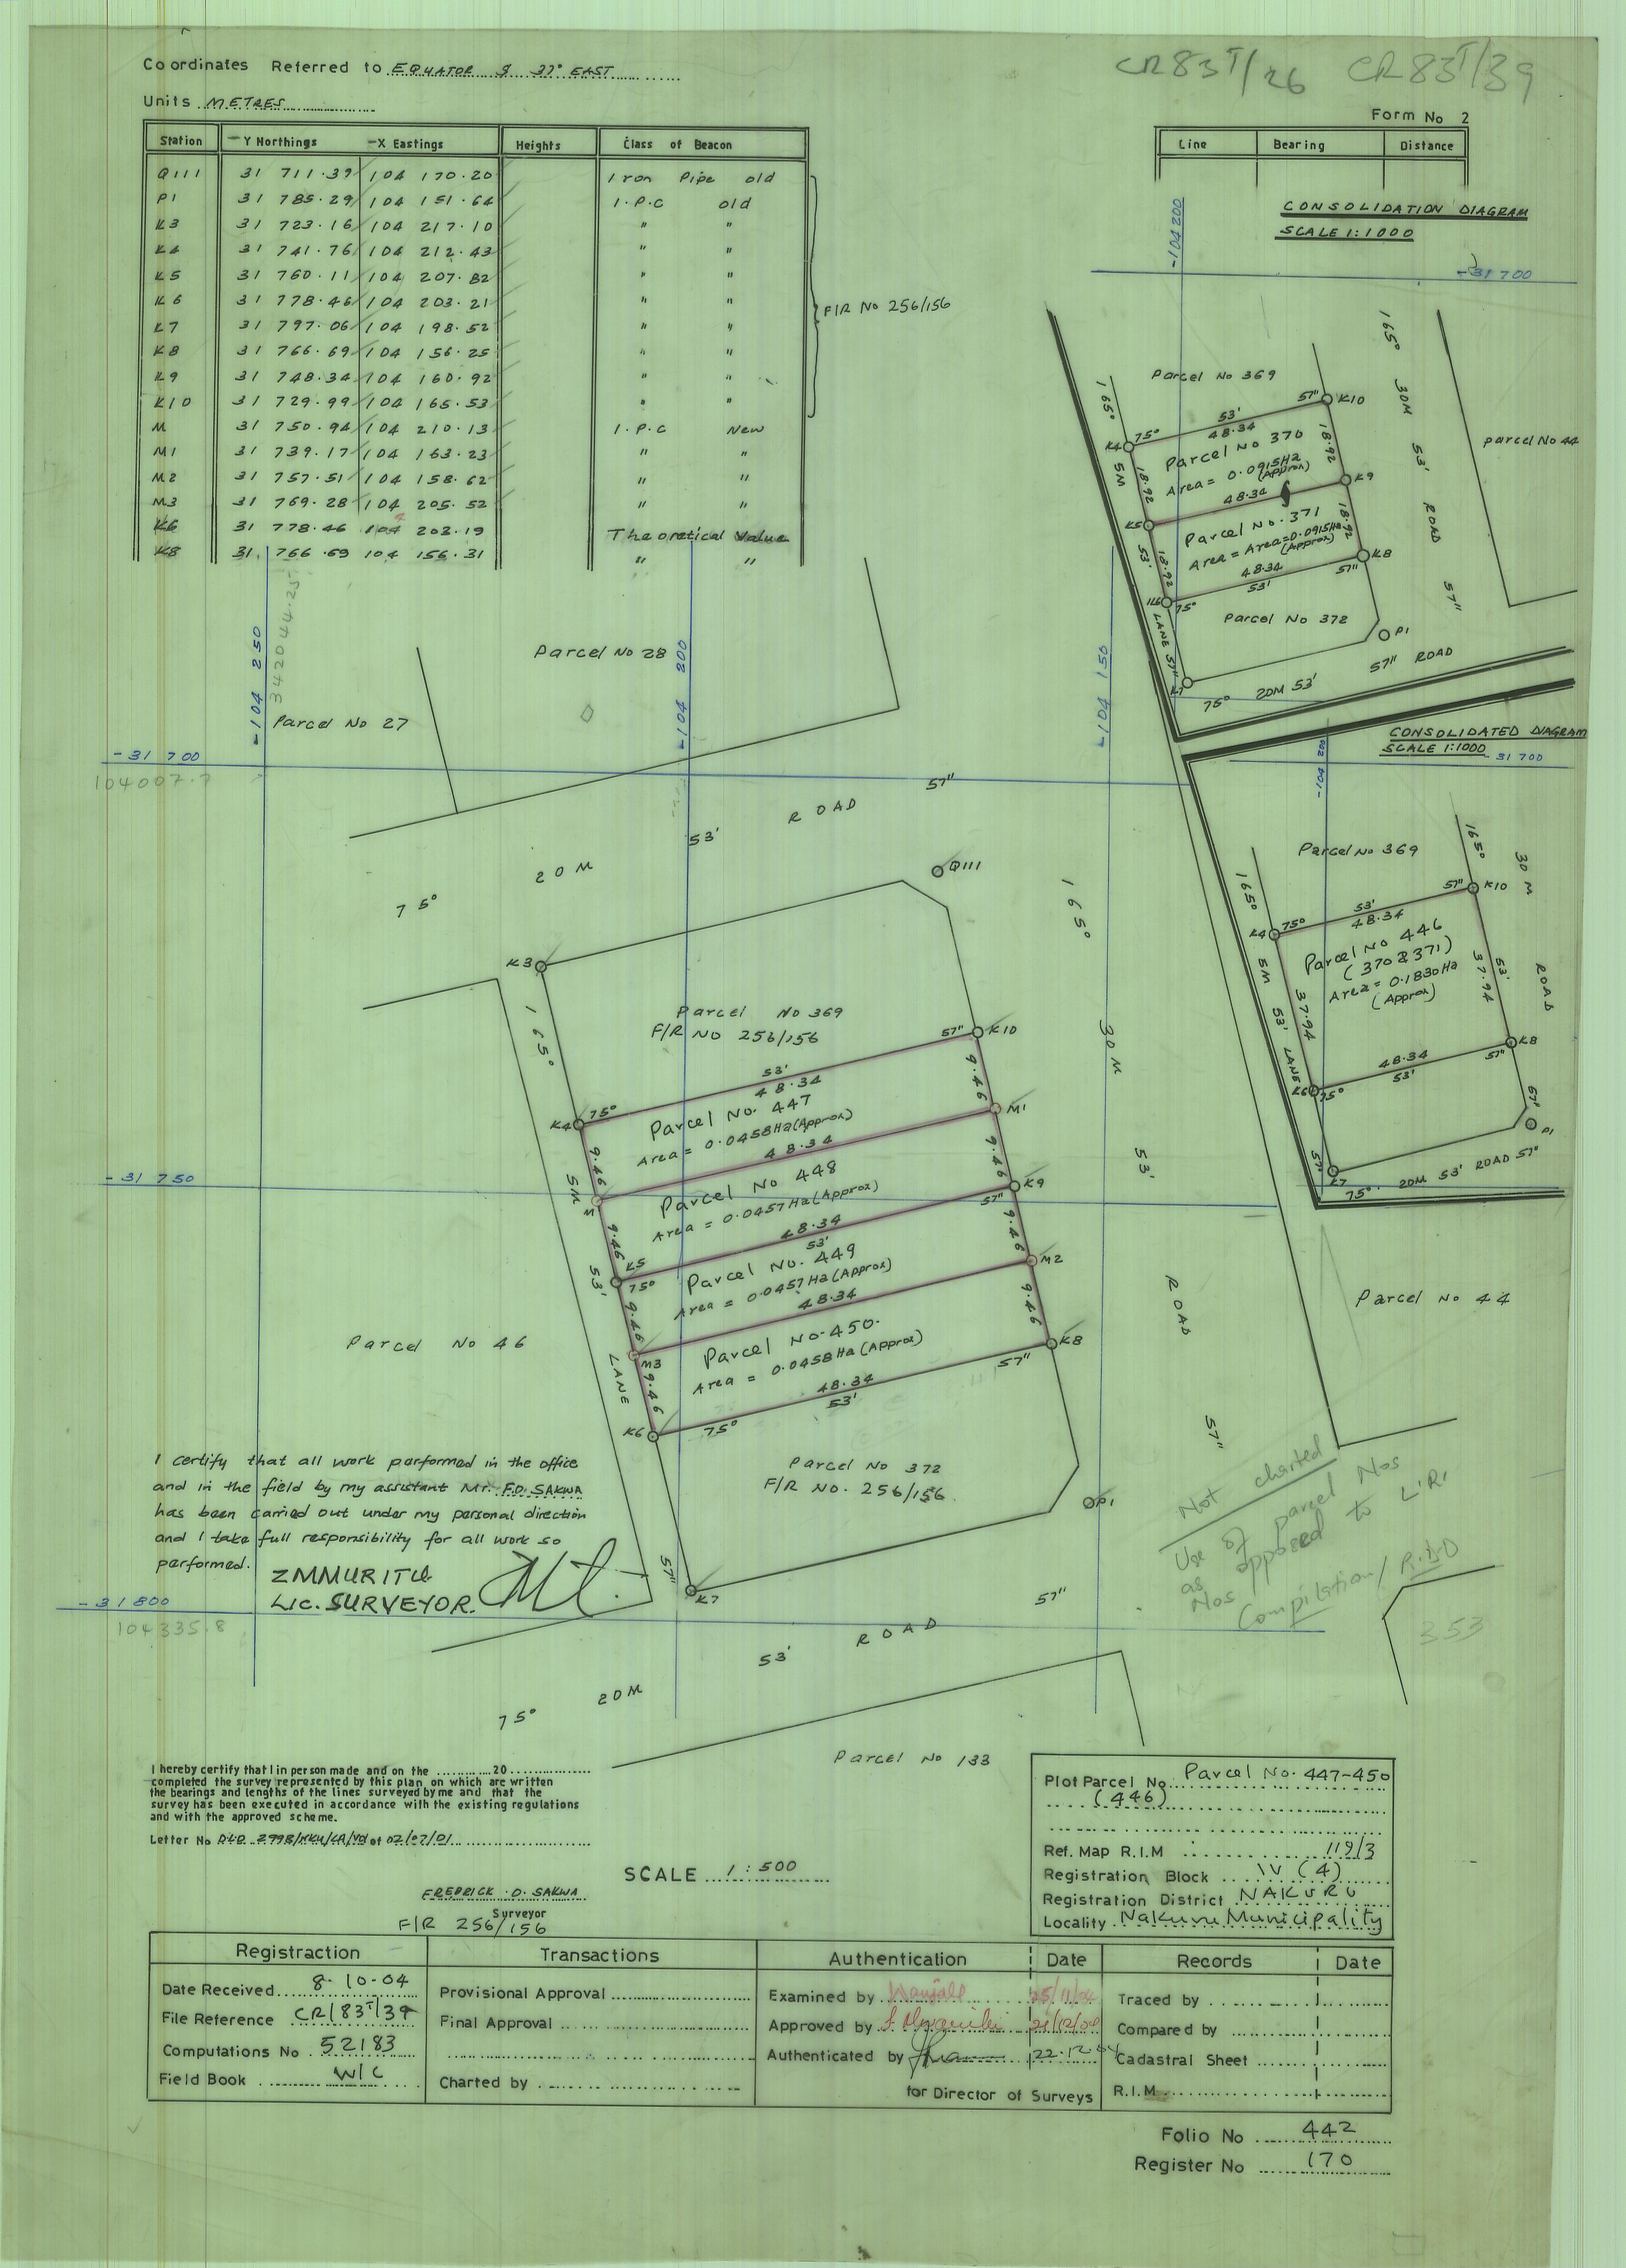 Coordinates Referred to EQUATOR & 37° EAST
Units METRES
CR 83 T/26 CR 83 T/39
Form No 2
Station -Y Northings -X Eastings Heights Class of Beacon
Q111 31 711.39 104 170.20 Iron Pipe old
P1 31 785.29 104 151.64 I.P.C old
K3 31 723.16 104 217.10 " "
K4 31 741.76 104 212.43 " "
K5 31 760.11 104 207.82 " "
K6 31 778.46 104 203.21 " "
K7 31 797.06 104 198.52 " "
K8 31 766.69 104 156.25 " "
K9 31 748.34 104 160.92 " "
K10 31 729.99 104 165.53 " "
M 31 750.94 104 210.13 I.P.C New
M1 31 739.17 104 163.23 " "
M2 31 757.51 104 158.62 " "
M3 31 769.28 104 205.52 " "
K6 31 778.46 104 203.19 Theoretical Value
K8 31 766.69 104 156.31 " "
F/R No 256/156
Line Bearing Distance
CONSOLIDATION DIAGRAM
SCALE 1:1000
-104 200
-31 700
165°
Parcel No 369
30M
165°
57" K10
53'
48.34
K4 75°
Parcel No 370
Area = 0.0915Ha
(Approx)
18.92
Parcel No 44
53'
5M
18.92
48.34
K9
K5
Parcel No. 371
Area = Area=0.0915Ha
(Approx)
18.92
ROAD
53'
18.92
48.34
53'
57" K8
K6 75°
57"
LANE 57"
Parcel No 372
P1
57" ROAD
K7
75° 20M 53'
CONSOLIDATED DIAGRAM
SCALE 1:1000
-31 700
-104 200
Parcel No 369
165°
30 M
165°
57" K10
53'
48.34
K4 75°
Parcel No 446
(370 & 371)
Area = 0.1830Ha
(Approx)
53'
37.94
ROAD
5M
37.94
53'
LANE
48.34
53'
57" K8
K6 75°
57"
P1
57"
K7
75° 20M 53' ROAD 57"
-104 250
342044.25
-104 200
-104 150
Parcel No 28
Parcel No 27
-31 700
104007.7
57"
ROAD
53'
20M
75°
Q111
165°
K3
165°
Parcel No 369
F/R NO 256/156
57" K10
30M
53'
48.34
K4 75°
Parcel No. 447
Area = 0.0458Ha(Approx)
9.46
M1
9.46
48.34
-31 750
5M
M
Parcel No 448
Area = 0.0457Ha(Approx)
9.46
57" K9
53'
9.46
48.34
53'
K5
75°
53'
Parcel No. 449
Area = 0.0457Ha(Approx)
9.46
M2
9.46
48.34
ROAD
Parcel No 44
Parcel No 46
LANE
M3
Parcel No.450.
Area = 0.0458Ha(Approx)
9.46
9.46
K8
57"
48.34
53'
K6
75°
57"
Parcel No 372
F/R NO. 256/156
P1
Not charted
Use of parcel Nos
as opposed to L.R.
Nos
Compilation/R.I.D
353
I certify that all work performed in the office
and in the field by my assistant Mr. F.D. SAKWA
has been carried out under my personal direction
and I take full responsibility for all work so
performed.
ZMMURITU
LIC. SURVEYOR.
57"
K7
57"
-31 800
104335.8
ROAD
53'
20M
75°
Parcel No 133
I hereby certify that I in person made and on the ............20................
completed the survey represented by this plan on which are written
the bearings and lengths of the lines surveyed by me and that the
survey has been executed in accordance with the existing regulations
and with the approved scheme.
Letter No DLO 2998/NKU/LA/Vol of 02/07/01
SCALE 1:500
FREDRICK O. SAKWA
Surveyor
F/R 256/156
Plot Parcel No. Parcel No. 447-450
(446)
Ref. Map R.I.M 119/3
Registration Block IV (4)
Registration District NAKURU
Locality Nakuru Municipality
Registraction Transactions Authentication Date Records Date
Date Received 8-10-04 Provisional Approval Examined by 25/11/04 Traced by
File Reference CR/83T/39 Final Approval Approved by 21/12/04 Compared by
Computations No 52183 Authenticated by 22.12.04 Cadastral Sheet
Field Book W/C Charted by for Director of Surveys R.I.M
Folio No 442
Register No 170